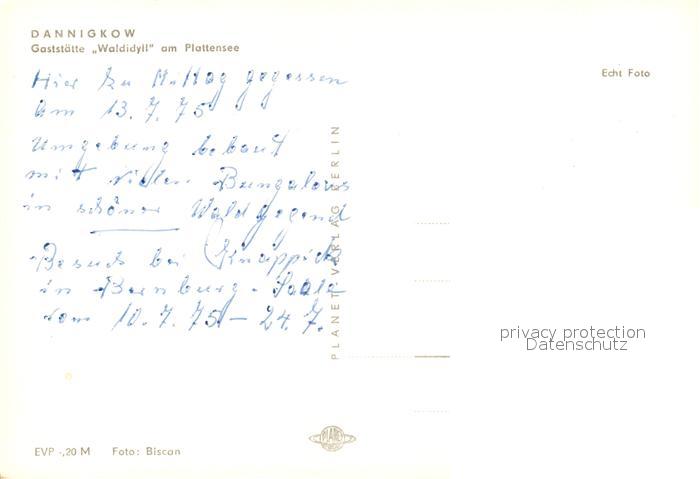 DANNIGKOW
Gaststätte „Waldidyll" am Plattensee
Echt Foto
Hier zu Mittag gegessen
am 13.7.75
Umgebung bebaut
mit vielen Bungalows
in schöner Waldgegend
Besuch bei Knappick
in Bernburg - Saale
vom 10.7.75 – 24.7.
PLANET-VERLAG BERLIN
privacy protection
Datenschutz
PLANET
EVP -,20 M Foto: Biscan